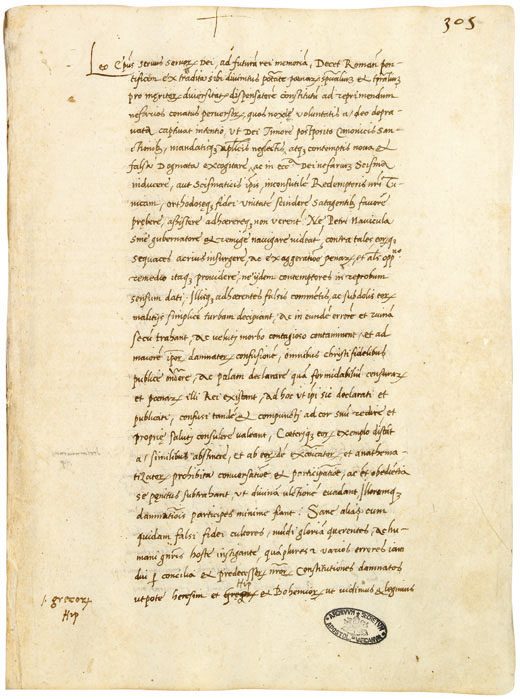 305
Leo Epus servus servor Dei, ad futurã rei memoria, Decet Romanũ pon-
tificem ex tradita sibi divinitus potate penar spualium et tpralium
pro meritor diversitate dispensatore constitutũ ad reprimendum
nefarios conatus perversor, quos noxie voluntatis adeo depra-
vata captivat intentio, ut Dei timore postposito Canonicis San-
ctionib, mandatisq apticis neglectis, atq contemptis nova et
falsa Dogmata excogitare, ac in Eccã Dei nefariũ Scisma
inducere, aut Scismaticis ipis, inconsutile Redemptoris nrĩ Tu-
nicam, orthodoxeq fidei unitatẽ scindere satagentib favorẽ
prebere, assistere adhererq non verent Ne Petri Navicula
sine gubernatore et remige navigare videat, contra tales eorq
sequaces acrius insurgere, ac exaggeratione penar et als oppno
remedio itaq providere, ne ijdem contemptores in reprobum
sensum dati, Illisq adherentes falsis commentis, ac subdolis eor
malitijs simplicẽ turbam decipiant, ac in eundẽ errorẽ et ruinã
secũ trahant, ac veluti morbo contagioso contaminent, et ad
maiorẽ ipor damnator confusionẽ, omnibus christi fidelibus
publice ... ac palam declarare quã formidabiliũ censurar
et poenar illi Rei existant, Ad hoc ut ipi sic declarati et
publicati, confusi tandẽ et compuncti ad cor suũ redire et
proprie saluti consulere valeant, Coeteriq eor exemplo discãt
a similibus abstinere, et ab eor de excõicator, et anathema-
tizator prohibita conversatione et participatione, ac et obedientia
se penitus subtrahant ut divinã ultionẽ evadant Illoremq
damnationis participes minime fiant. Sane alias cum
quidam falsi fidei cultores, mũdi gloriã querentes, ac hu-
mani gnris hoste instigante, quãplures et varios errores iam
du p concilia et predecessor nror Constitutiones damnatos
utpote heresim et grecor Hir et Bohemior, ut vidimus et legimus
j. grecor
Hir